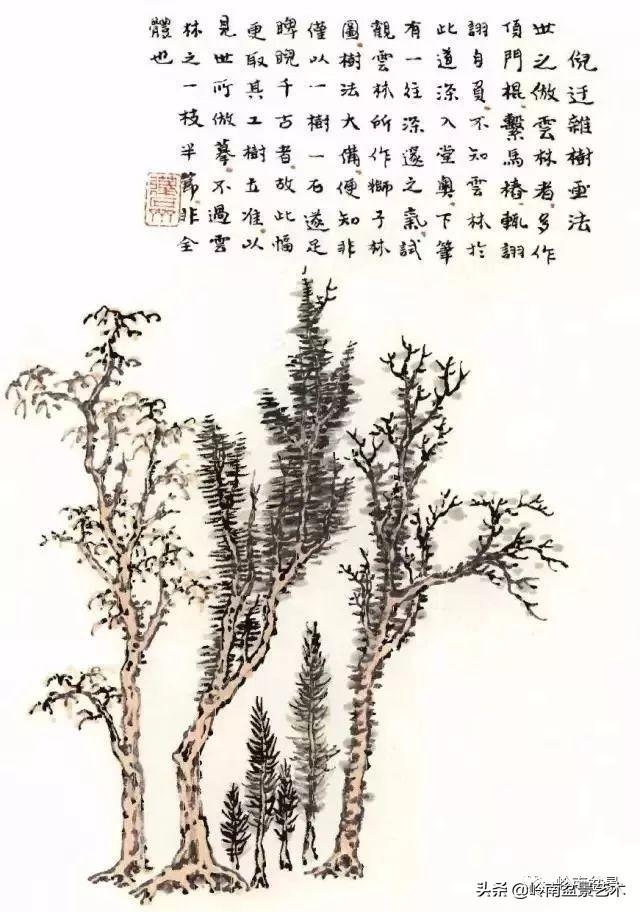 倪迂雜樹畫法
世之倣雲林者多作
頂門棍繫馬樁輒詡
詡自負不知雲林於
此道深入堂奧下筆
有一往深邃之氣試
觀雲林所作獅子林
圖樹法大備便知非
僅以一樹一石遂足
睥睨千古者故此幅
更取其工樹五准以
見世所倣摹不過雲
林之一枝半節非全
體也
岭南盆景
头条 @岭南盆景艺术